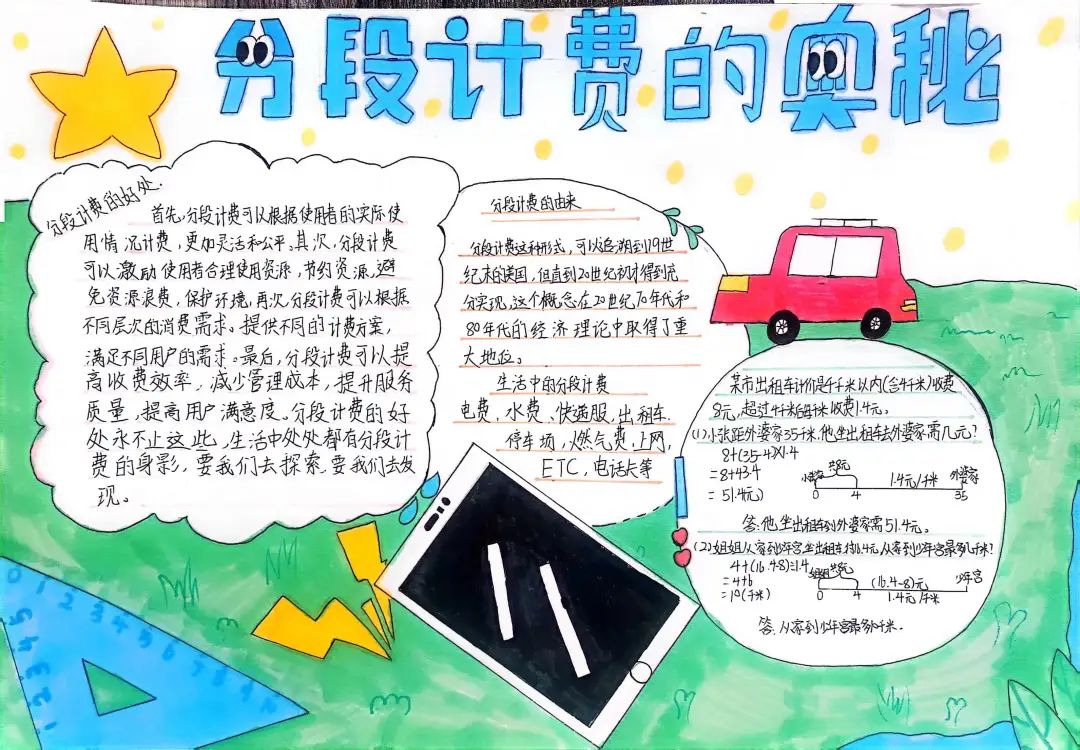 分段计费的奥秘
分段计费的好处.
首先,分段计费可以根据使用者的实际使
用情况计费,更加灵活和公平。其次,分段计费
可以激励使用者合理使用资源,节约资源,避
免资源浪费,保护环境,再次,分段计费可以根据
不同层次的消费需求。提供不同的计费方案,
满足不同用户的需求。最后,分段计费可以提
高收费效率,减少管理成本,提升服务
质量,提高用户满意度。分段计费的好
处永不止这些,生活中处处都有分段计
费的身影,要我们去探索,要我们去发
现。
分段计费的由来
分段计费这种形式,可以追溯到19世
纪末的美国,但直到20世纪初才得到充
分实现,这个概念在20世纪70年代和
80年代的经济理论中取得了重
大地位。
生活中的分段计费
电费、水费、快递服、出租车、
停车场,燃气费,上网,
ETC,电话卡等
某市出租车计价是4千米以内(含4千米)收费
8元,超过4千米每千米收费1.4元。
(1)小张距外婆家35千米,他坐出租车去外婆家需几元?
8+(35-4)×1.4
=8+43.4
=51.4(元)
共8元
1.4元/千米
外婆家
0 4 35
答:他坐出租车到外婆家需51.4元。
(2)姐姐从家到少年宫,坐出租车付16.4元,从家到少年宫最多几千米?
4+(16.4-8)÷1.4
=4+6
=10(千米)
姐姐家
共8元
(16.4-8)元
少年宫
0 4 1.4元/千米
答:从家到少年宫最多10千米.
0 1 2 3 4 5 6 7 8
1 2 3 4 5